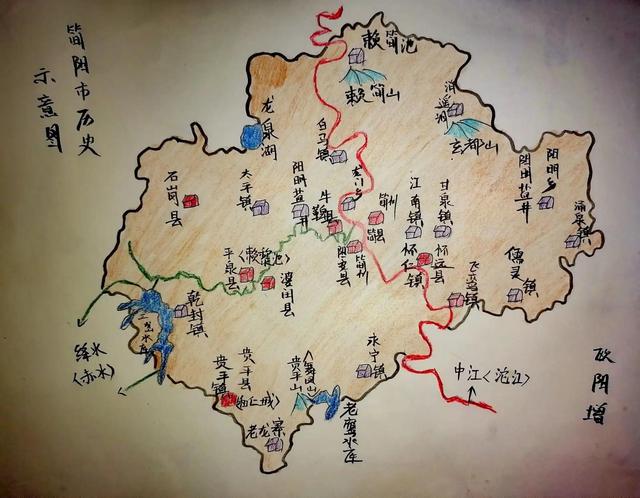 简阳市历史
示意图
赖简池
赖简山
逍遥湖
玄都山
龙泉湖
白马镇
石岗县
太平镇
阳明盐井
牛鞞县
龙门乡
简州
简县
江南镇
甘泉镇
阳明盐井
阳明乡
涌泉镇
平泉县
(赖黎池)
婆闰县
阳安县
简州
怀仁镇
怀远县
飞鸟镇
儒灵镇
乾封镇
三岔水库
绛水
(赤水)
贵平镇
贵平县
(和仁城)
贵平山
(舞凤山)
永宁镇
老鹰水库
老龙寨
中江(沱江)
欧阳增